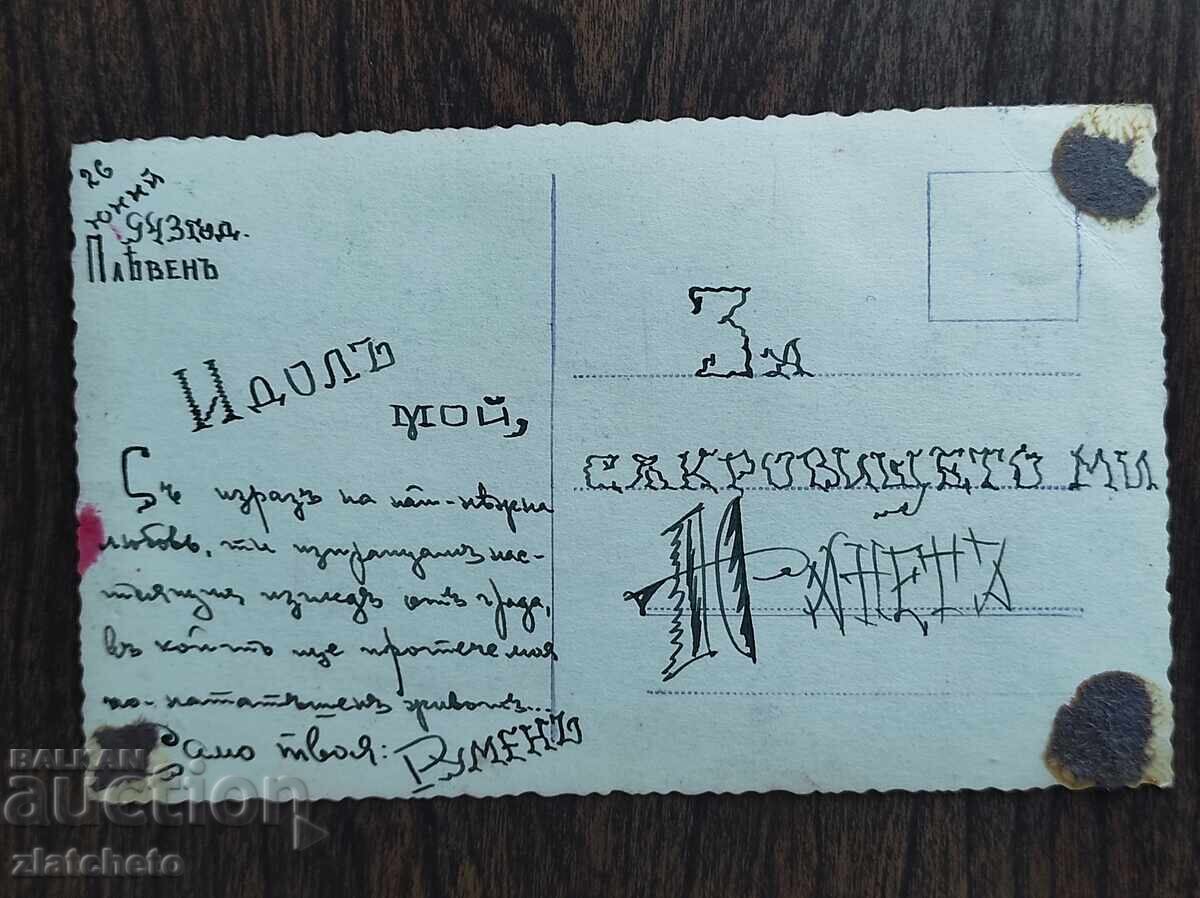 26
юний
943 год.
Плѣвенъ
Идолъ
мой,
Съ изразъ на най-вѣрна
любовь, ти изпращамъ нас-
тоящия изгледъ отъ града,
въ който ще протече моя
по-нататъшенъ животъ...
Само твоя: Руменъ
За
сѫкровището ми
BALKAN
auction
zlatcheto